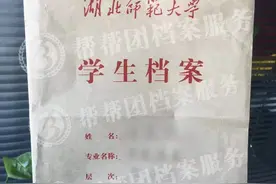 湖北师范大学
学生档案
姓名：
专业名称：
层次：
帮帮团档案服务
帮帮团档案服务